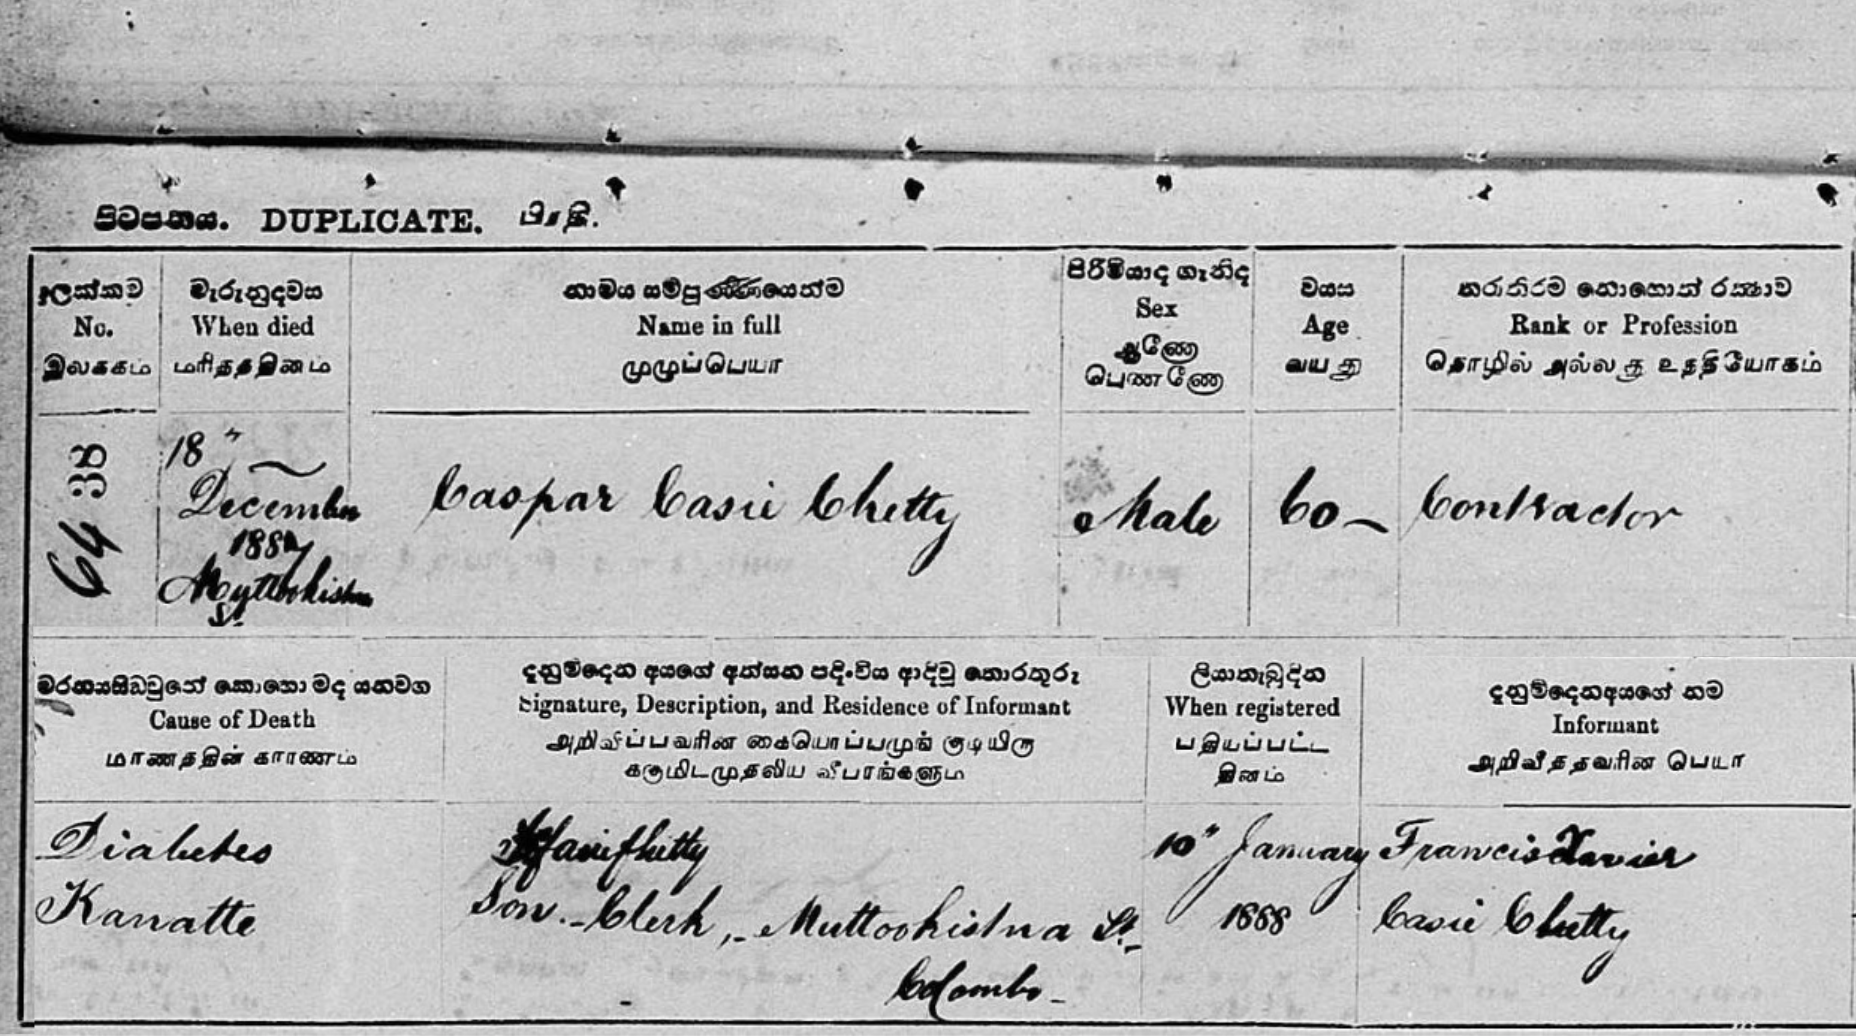 පිටපතය. DUPLICATE. பிரதி.
ලක්කම
No.
இலக்கம்
මැරුනුදවස
When died
மரித்ததினம்
නාමය සම්පූර්ණයෙන්ම
Name in full
முழுப்பெயர்
පිරිමියාද ගැනිද
Sex
ஆணோ
பெண்ணோ
වයස
Age
வயது
තරාතිරම නොහොත් රක්ෂාව
Rank or Profession
தொழில் அல்லது உத்தியோகம்
64 38
18"
December
1887
Muttookistna
St.
Caspar Casie Chetty
Male
60
Contractor
Cause of Death
மரணத்தின் காரணம்
දනුම්දෙන අයගේ අත්සන පදිංචිය ආදිවූ තොරතුරු
Signature, Description, and Residence of Informant
அறிவிப்பவரின் கையொப்பமுங் குடியிரு
க்குமிடமுதலிய விபரங்களும்
ලියාතැබූදින
When registered
பதியப்பட்ட
தினம்
දනුම්දෙනඅයගේ නම
Informant
அறிவித்தவரின் பெயர்
Diabetes
Kanatte
Son. - Clerk, - Muttookistna St.
Colombo -
10" January
1888
Francis Xavier
Casie Chetty